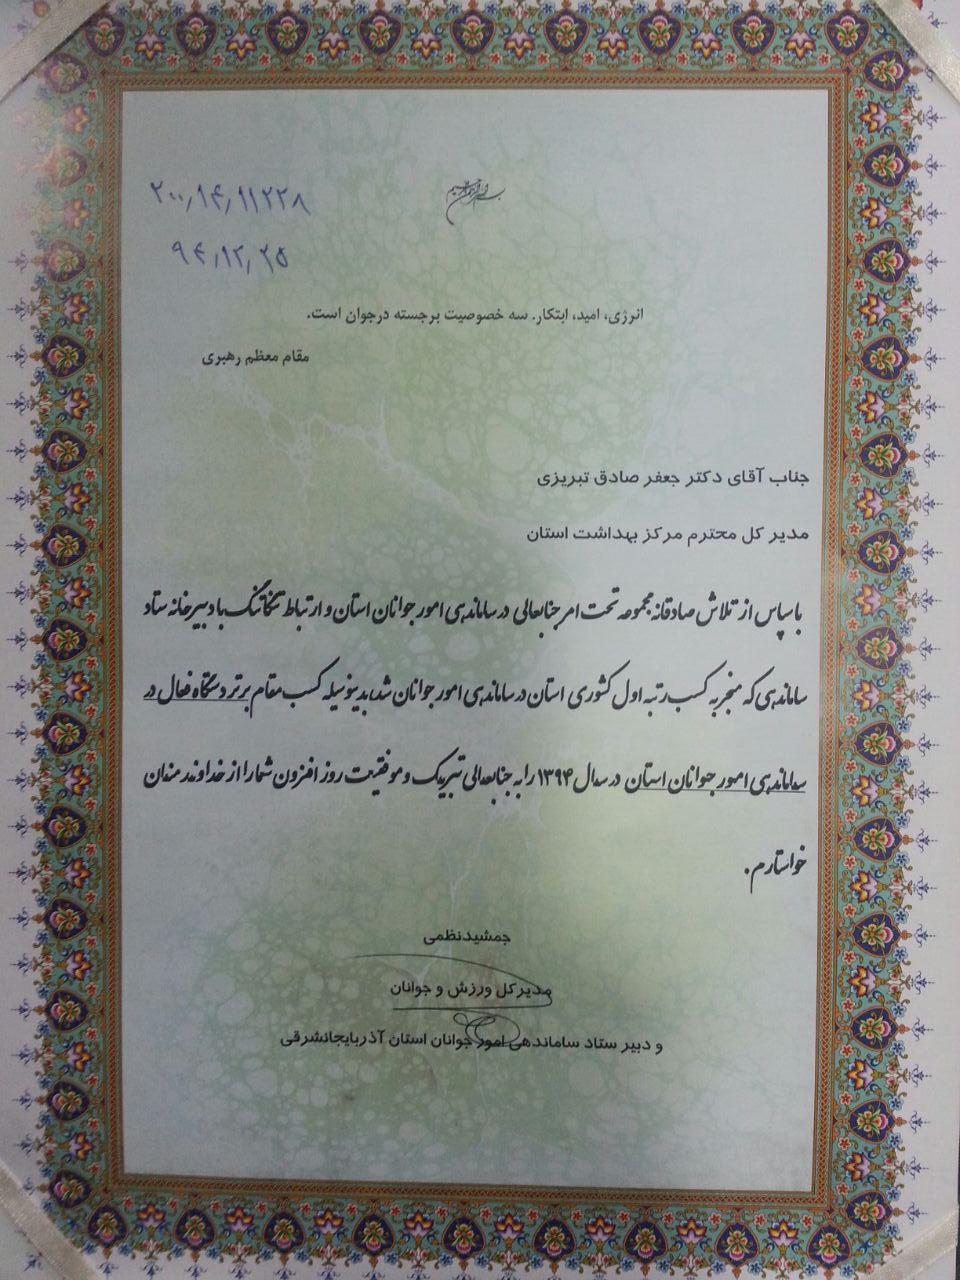 بسم الله الرحمن الرحیم
۲۰۰/۱۴/۱۱۲۲۸
۹۴/۱۲/۲۵
انرژی، امید، ابتکار. سه خصوصیت برجسته درجوان است.
مقام معظم رهبری
جناب آقای دکتر جعفر صادق تبریزی
مدیر کل محترم مرکز بهداشت استان
با سپاس از تلاش صادقانه مجموعه تحت امر جنابعالی در ساماندهی امور جوانان استان و ارتباط تنگاتنگ با دبیرخانه ستاد
ساماندهی که منجر به کسب رتبه اول کشوری استان در ساماندهی امور جوانان شد، بدینوسیله کسب مقام برتر دستگاه فعال در
ساماندهی امور جوانان استان در سال ۱۳۹۴ را به جنابعالی تبریک و موفقیت روز افزون شما را از خداوند منان
خواستارم.
جمشیدنظمی
مدیرکل ورزش و جوانان
و دبیر ستاد ساماندهی امور جوانان استان آذربایجانشرقی